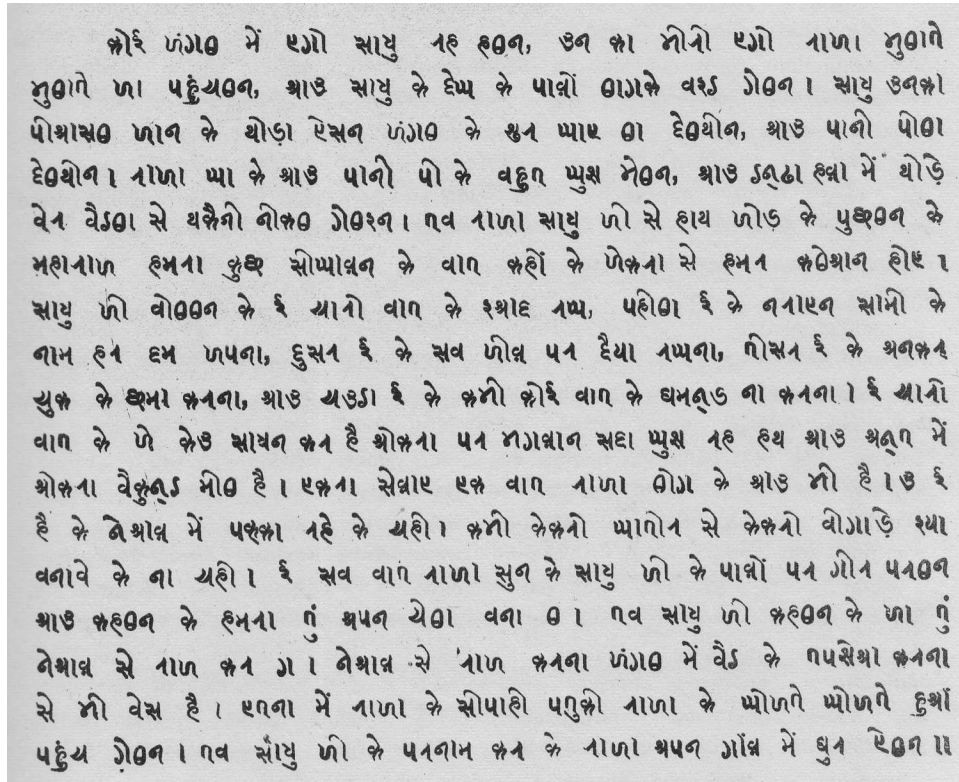 𑂍𑂷𑂆 𑂔𑂁𑂏𑂪 𑂧𑂵𑂁 𑂉𑂏𑂷 𑂮𑂰𑂡𑂳 𑂩𑂯 𑂯𑂪𑂢, 𑂇𑂢 𑂍𑂰 𑂦𑂲𑂩𑂲 𑂉𑂏𑂷 𑂩𑂰𑂔𑂰 𑂦𑂳𑂪𑂰𑂞𑂵
𑂦𑂳𑂪𑂰𑂞𑂵 𑂔𑂰 𑂣𑂯𑂳𑂁𑂒𑂪𑂢, 𑂄𑂇 𑂮𑂰𑂡𑂳 𑂍𑂵 𑂠𑂵𑂎 𑂍𑂵 𑂣𑂰𑂫𑂷𑂁 𑂪𑂰𑂏𑂍𑂵 𑂥𑂅𑂘 𑂏𑂵𑂪𑂢𑃀 𑂮𑂰𑂡𑂳 𑂇𑂢𑂍𑂰
𑂣𑂲𑂄𑂮𑂪 𑂔𑂰𑂢 𑂍𑂵 𑂟𑂷𑂚𑂰 𑂊𑂮𑂢 𑂔𑂁𑂏𑂪 𑂍𑂵 𑂤𑂪 𑂎𑂰𑂉 𑂪𑂰 𑂠𑂵𑂪𑂟𑂲𑂢, 𑂄𑂇 𑂣𑂰𑂢𑂲 𑂣𑂲𑂪𑂰
𑂠𑂵𑂪𑂟𑂲𑂢𑃀 𑂩𑂰𑂔𑂰 𑂎𑂰 𑂍𑂵 𑂄𑂇 𑂣𑂰𑂢𑂲 𑂣𑂲 𑂍𑂵 𑂥𑂯𑂳𑂞 𑂎𑂳𑂬 𑂦𑂵𑂪𑂢, 𑂄𑂇 𑂘𑂢𑂹𑂜𑂰 𑂯𑂫𑂰 𑂧𑂵𑂁 𑂟𑂷𑂚𑂵
𑂥𑂵𑂩 𑂥𑂶𑂘𑂪𑂰 𑂮𑂵 𑂟𑂍𑂶𑂢𑂲 𑂢𑂲𑂍𑂪 𑂏𑂵𑂪𑂅𑂢𑃀 𑂞𑂥 𑂩𑂰𑂔𑂰 𑂮𑂰𑂡𑂳 𑂔𑂲 𑂮𑂵 𑂯𑂰𑂟 𑂔𑂷𑂚 𑂍𑂵 𑂣𑂳𑂓𑂪𑂢 𑂍𑂵
𑂧𑂯𑂰𑂩𑂰𑂔 𑂯𑂧𑂩𑂰 𑂍𑂳𑂓 𑂮𑂲𑂎𑂰𑂫𑂢 𑂍𑂵 𑂥𑂰𑂞 𑂍𑂯𑂷𑂁 𑂍𑂵 𑂔𑂵𑂍𑂩𑂰 𑂮𑂵 𑂯𑂧𑂩 𑂍𑂪𑂵𑂄𑂢 𑂯𑂷𑂉𑃀
𑂮𑂰𑂡𑂳 𑂔𑂲 𑂥𑂷𑂪𑂪𑂢 𑂍𑂵 𑂆 𑂒𑂰𑂩𑂷 𑂥𑂰𑂞 𑂍𑂵 𑂅𑂄𑂠 𑂩𑂎, 𑂣𑂯𑂲𑂪𑂰 𑂆 𑂍𑂵 𑂢𑂩𑂰𑂉𑂢 𑂮𑂰𑂧𑂲 𑂍𑂵
𑂢𑂰𑂧 𑂯𑂩 𑂠𑂧 𑂔𑂣𑂢𑂰, 𑂠𑂳𑂮𑂩 𑂆 𑂍𑂵 𑂮𑂥 𑂔𑂲𑂫 𑂣𑂩 𑂠𑂶𑂨𑂰 𑂩𑂎𑂢𑂰, 𑂞𑂲𑂮𑂩 𑂆 𑂍𑂵 𑂃𑂢𑂍𑂩
𑂒𑂳𑂍 𑂍𑂵 𑂓𑂧𑂰 𑂍𑂩𑂢𑂰, 𑂄𑂇 𑂒𑂇𑂘𑂰 𑂆 𑂍𑂵 𑂍𑂦𑂲 𑂍𑂷𑂆 𑂥𑂰𑂞 𑂍𑂵 𑂐𑂧𑂢𑂹𑂙 𑂢𑂰 𑂍𑂩𑂢𑂰𑃀 𑂆 𑂒𑂰𑂩𑂷
𑂥𑂰𑂞 𑂍𑂵 𑂔𑂵 𑂍𑂵𑂇 𑂮𑂰𑂡𑂢 𑂍𑂩 𑂯𑂶 𑂋𑂍𑂩𑂰 𑂣𑂩 𑂦𑂏𑂫𑂰𑂢 𑂮𑂠𑂰 𑂎𑂳𑂬 𑂩𑂯 𑂯𑂟 𑂄𑂇 𑂃𑂢𑂹𑂞 𑂧𑂵𑂁
𑂋𑂍𑂩𑂰 𑂥𑂶𑂍𑂳𑂢𑂹𑂘 𑂧𑂲𑂪 𑂯𑂶𑃀 𑂉𑂍𑂩𑂰 𑂮𑂵𑂫𑂰𑂉 𑂉𑂍 𑂥𑂰𑂞 𑂩𑂰𑂔𑂰 𑂪𑂷𑂏 𑂍𑂵 𑂄𑂇 𑂦𑂲 𑂯𑂶𑃀 𑂇 𑂆
𑂯𑂶 𑂍𑂵 𑂢𑂵𑂄𑂫 𑂧𑂵𑂁 𑂣𑂍𑂹𑂍𑂰 𑂩𑂯𑂵 𑂍𑂵 𑂒𑂯𑂲𑃀 𑂍𑂦𑂲 𑂍𑂵𑂍𑂩𑂷 𑂎𑂰𑂞𑂲𑂩 𑂮𑂵 𑂍𑂵𑂍𑂩𑂷 𑂥𑂲𑂏𑂰𑂚𑂵 𑂅𑂨𑂰
𑂥𑂢𑂰𑂫𑂵 𑂍𑂵 𑂢𑂰 𑂒𑂯𑂲𑃀 𑂆 𑂮𑂥 𑂥𑂰𑂞 𑂩𑂰𑂔𑂰 𑂮𑂳𑂢 𑂍𑂵 𑂮𑂰𑂡𑂳 𑂔𑂲 𑂍𑂵 𑂣𑂰𑂫𑂷𑂁 𑂣𑂩 𑂏𑂲𑂩 𑂣𑂩𑂪𑂢
𑂄𑂇 𑂍𑂯𑂪𑂢 𑂍𑂵 𑂯𑂧𑂩𑂰 𑂞𑂳𑂁 𑂃𑂣𑂢 𑂒𑂵𑂪𑂰 𑂥𑂢𑂰 𑂪𑃀 𑂞𑂥 𑂮𑂰𑂡𑂳 𑂔𑂲 𑂍𑂯𑂪𑂢 𑂍𑂵 𑂔𑂰 𑂞𑂳𑂁
𑂢𑂵𑂄𑂫 𑂮𑂵 𑂩𑂰𑂔 𑂍𑂩 𑂏𑃀 𑂢𑂵𑂄𑂫 𑂮𑂵 𑂩𑂰𑂔 𑂍𑂩𑂢𑂰 𑂔𑂁𑂏𑂪 𑂧𑂵𑂁 𑂥𑂶𑂘 𑂍𑂵 𑂞𑂣𑂮𑂵𑂄 𑂍𑂩𑂢𑂰
𑂮𑂵 𑂦𑂲 𑂥𑂵𑂮 𑂯𑂶𑃀 𑂉𑂞𑂢𑂰 𑂧𑂵𑂁 𑂩𑂰𑂔𑂰 𑂍𑂵 𑂮𑂲𑂣𑂰𑂯𑂲 𑂣𑂞𑂳𑂍𑂲 𑂩𑂰𑂔𑂰 𑂍𑂵 𑂎𑂷𑂔𑂞𑂵 𑂎𑂷𑂔𑂞𑂵 𑂯𑂳𑂄𑂁
𑂣𑂯𑂳𑂁𑂒 𑂏𑂵𑂪𑂢𑃀 𑂞𑂥 𑂮𑂰𑂡𑂳 𑂔𑂲 𑂍𑂵 𑂣𑂩𑂢𑂰𑂧 𑂍𑂩 𑂍𑂵 𑂩𑂰𑂔𑂰 𑂃𑂣𑂢 𑂏𑂰𑂁𑂫 𑂧𑂵𑂁 𑂐𑂳𑂩 𑂊𑂪𑂢𑃁